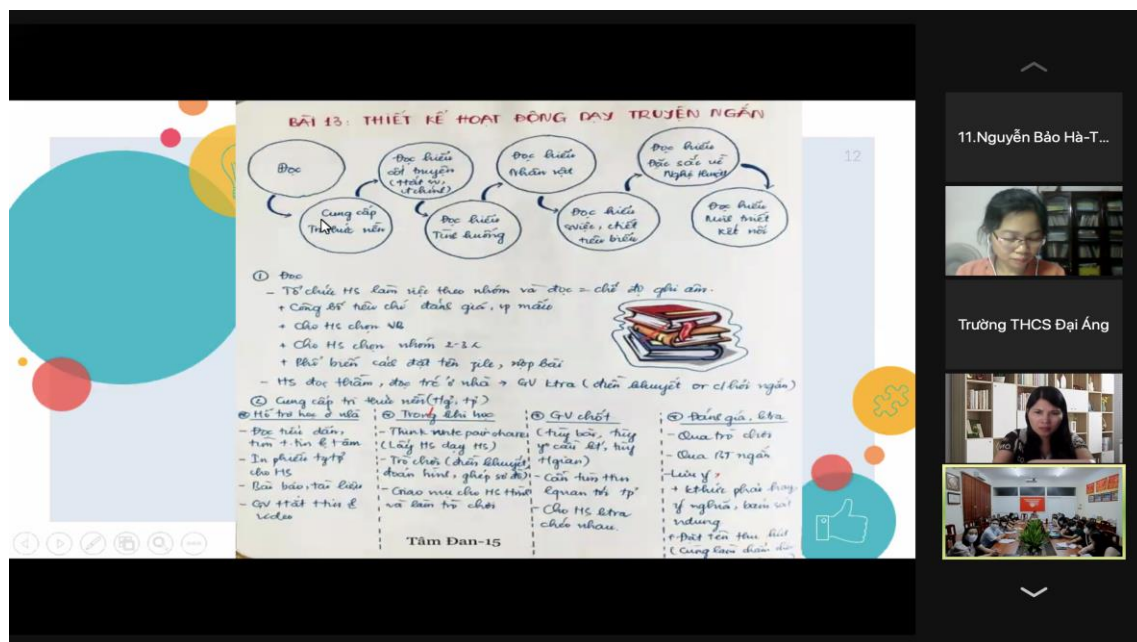 BÀI 13: THIẾT KẾ HOẠT ĐỘNG DẠY TRUYỆN NGẮN
12
Đọc
Cung cấp
Tri thức nền
Đọc hiểu
cốt truyện
(ttắt
Đọc hiểu
Tình huống
Đọc hiểu
Nhân vật
Đọc hiểu
sviệc, chtiết
tiêu biểu
Đọc hiểu
Đặc sắc về
Nghệ thuật
Đọc hiểu
kết nối
① Đọc
- Tổ chức HS làm việc theo nhóm và đọc = chế độ ghi âm.
+ Công bố tiêu chí đánh giá, vp mẫu
+ Cho HS chọn VB
+ Cho HS chọn nhóm 2-3
+ Phổ biến cách đặt tên file, nộp bài
- HS đọc thầm, đọc trc ở nhà → GV ktra (điền khuyết or c/hỏi ngắn)
② Cung cấp tri thức nền (tgỉ, tp)
Hỗ trợ học ở nhà
- Đọc tiểu dẫn,
tìm t.tin
- In phiếu
cho HS
- Bài báo, tài liệu
- GV
video
Trong khi học
- Think write pair share
(Lấy HS dạy HS)
- Trò chơi (điền khuyết,
đoán hình, ghép sơ đồ)
- Giao nvụ cho HS
và làm trò chơi
GV chốt
(tùy bài, tùy
tgian)
- Cần tìm
lquan tới tp
- Cho HS ktra
chéo nhau.
Đánh giá, ktra
- Qua trò chơi
- Qua BT ngắn
- Lưu ý:
+ kthức phải hay
ý nghĩa, bám sát
ndung
+ Đặt tên thu hút
Tâm Đan-15
11.Nguyễn Bảo Hà-T...
Trường THCS Đại Áng